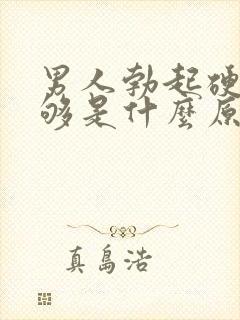 男人勃起硬
够是什麼原
真島浩